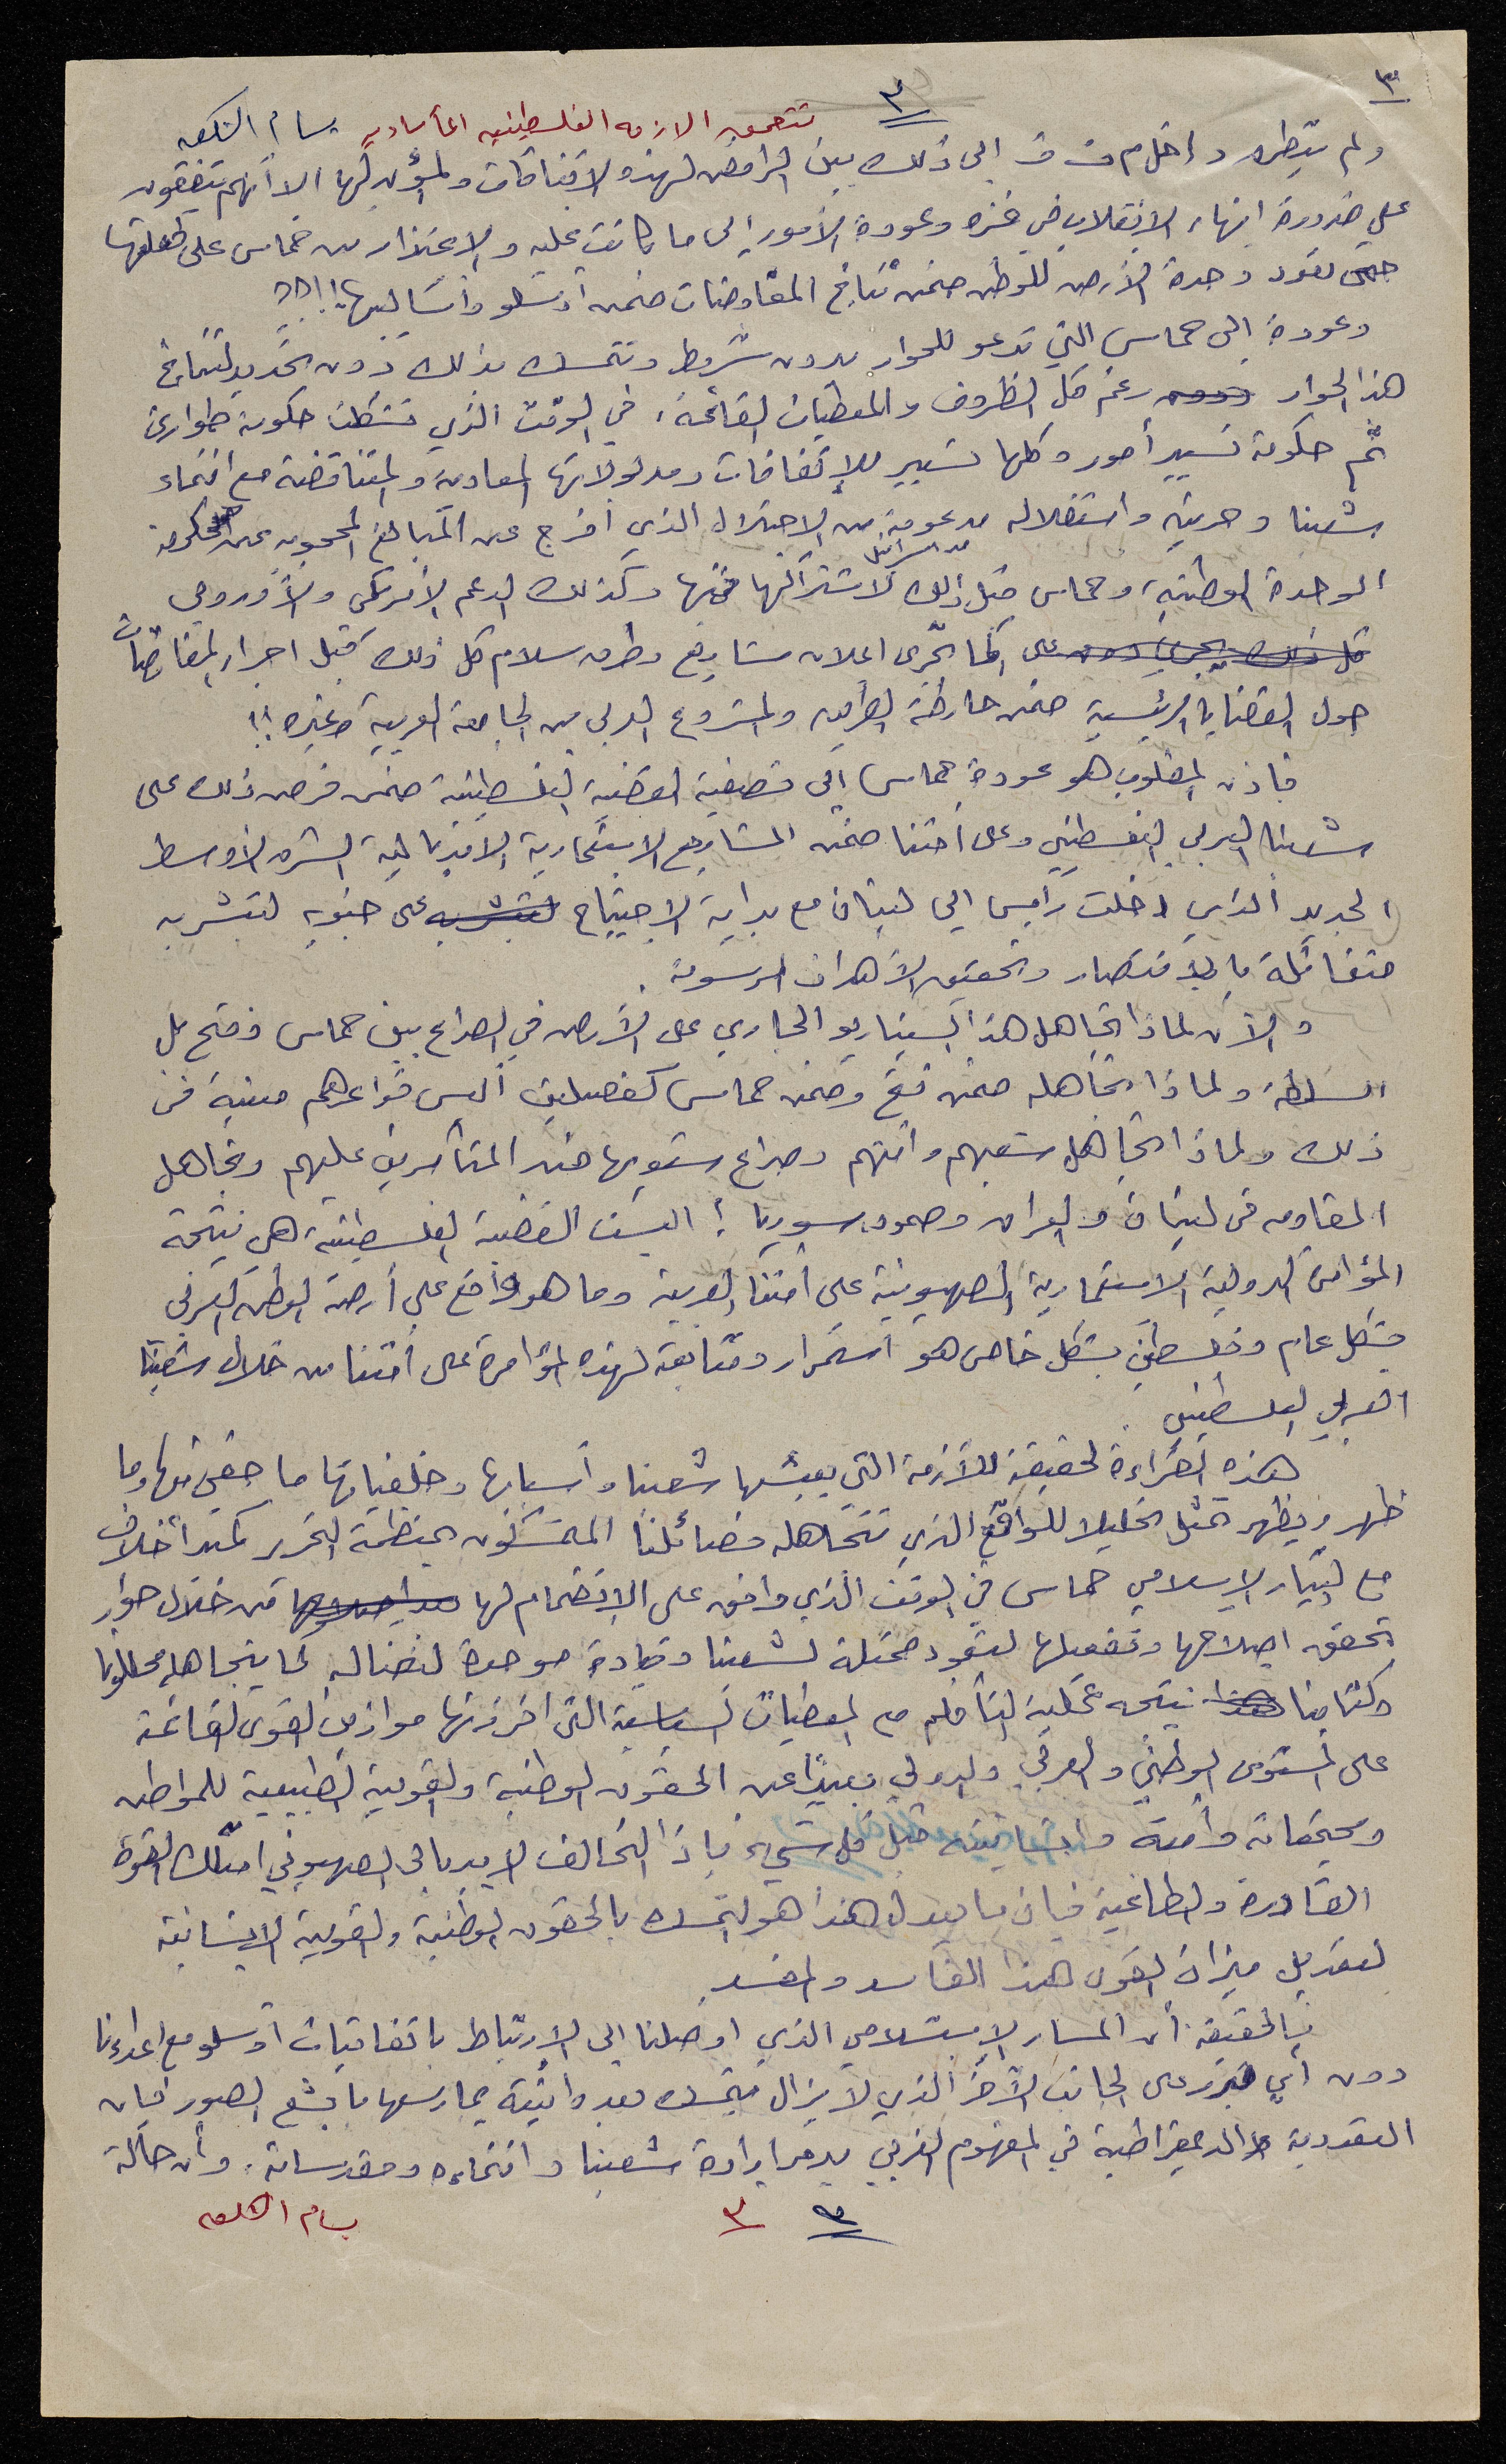 ٣
٣
تتعمق الازمه الفلسطينيه المأساويه بسام الشكعه
ولم يتطرد داخل م ت ف الى ذلك بين الرافض لهذه الاتفاقات والمؤيد لها الا أنهم يتفقون
على ضرورة إنهاء الإنقلاب في غزه وعودة الأمور إلى ما كانت عليه والإعتذار من حماس على
تعود وحدة الأرض للوطن ضمن نتائج المفاوضات ضمن أوسلو وأساليبها !!؟؟
وعودة إلى حماس التي تدعو للحوار بدون شروط وتتمسك بذلك دون تحديد لنتائج
هذا الحوار رغم كل الظروف والمعطيات القائمة، في الوقت الذي تشكلت حكومة طوارئ
ثم حكومة تسيير أمور وكلها تسيير للإتفاقات ومدلولاتها المعادية والمتناقضة مع انتماء
شعبنا وحريته واستقلاله مدعومة من الإحتلال الذي أفرج عن المبالغ المحجوبه عن حكومة
من اسرائيل
الوحدة الوطنية، وحماس قبل ذلك لاشتراكها فيها وكذلك الدعم الأمريكي والأوروبي
كل ذلك يجري على كما تجرى اعلان مشاريع وطرق سلام كل ذلك قبل اجراء المفاوضات
حول القضايا الرئيسية ضمن خارطة الطريق والمشروع العربي من الجامعة العربية وغيره !!
فإذن المطلوب هو عودة حماس إلى تصفية القضية الفلسطينية ضمن فرض ذلك على
شعبنا العربي الفلسطيني وعلى أمتنا ضمن المشاريع الإستعمارية الإمبريالية الشرق الأوسط
الجديد الذي دخلت رايس الى لبنان مع بداية الإجتياح على جنوبه لتبشر به
متفائلة بالإنتصار وتحقيق الأهداف المرسومة.
والآن لماذا تجاهل هذا السيناريو الجاري على الأرض في الصراع بين حماس وفتح بل
السلطة ولماذا تجاهله ضمن فتح وضمن حماس كفصيلين أليس قواعدهم مبنية في
ذلك ولماذا تجاهل شعبهم وأمتهم وصراع شعوبها ضد المتآمرين عليهم وتجاهل
المقاومه في لبنان والعراق وصمود سوريا ؟ اليست القضية الفلسطينية هي نتيجة
المؤامرة الدولية الإستعمارية الصهيونية على أمتنا العربية وما هو واقع على أرضة الوطن العربي
بشكل عام وفلسطين بشكل خاص هو استمرار ومتابعة لهذه المؤامرة على أمتنا من خلال شعبنا
العربي الفلسطيني .
هذه القراءة لحقيقة للأزمة التي يعيشها شعبنا وأسبابها وخلفياتها ما خفي منها وما
ظهر ويظهر تمثل تحليلا للواقع الذي تتجاهله فصائلنا المتمسكون بمنظمة التحرير كمبدأ خلاف
مع التيار الإسلامي حماس في الوقت الذي وافق على الإنضمام لها من خلال حوار
يحقق إصلاحها وتفعيلها لتعود ممثلة لشعبنا وقيادة موحدة لنضاله كما يتجاهله محللونا
وكتابنا نتيجه عملية التأقلم مع المعطيات السياسية التي افرزتها موازين القوى القائمة
على المستوى الوطني والعربي والدولي بعيدًا عن الحقوق الوطنية والقومية الطبيعية للمواطن
ومجتمعاته وأمته وإنسانيته قبل كل شيء فإذا التحالف الامبريالي الصهيوني امتلك القوة
القادرة والطاغية فإن ما يعدل هذا هو التمسك بالحقوق الوطنية والقومية الإنسانية
لتعديل ميزان القوى هذا الفاسد والمفسد.
بالحقيقة أن المسار الإستسلامي الذي أوصلنا إلى الإرتباط باتفاقيات أوسلو مع اعداءنا
دون أي على الجانب الآخر الذي لا يزال يتمسك بعدوانيته يمارسها بابشع الصور فإن
التعددية والديمقراطية في المفهوم الغربي يدمر إرادة شعبنا وانتماءه ومقدساته. وأن حالة
٣ ٣ بسام الشكعه